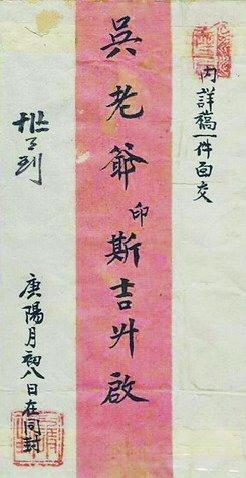 內詳稿一件面交
吳老爺印斯吉升啟
庚陽月初八日在同封